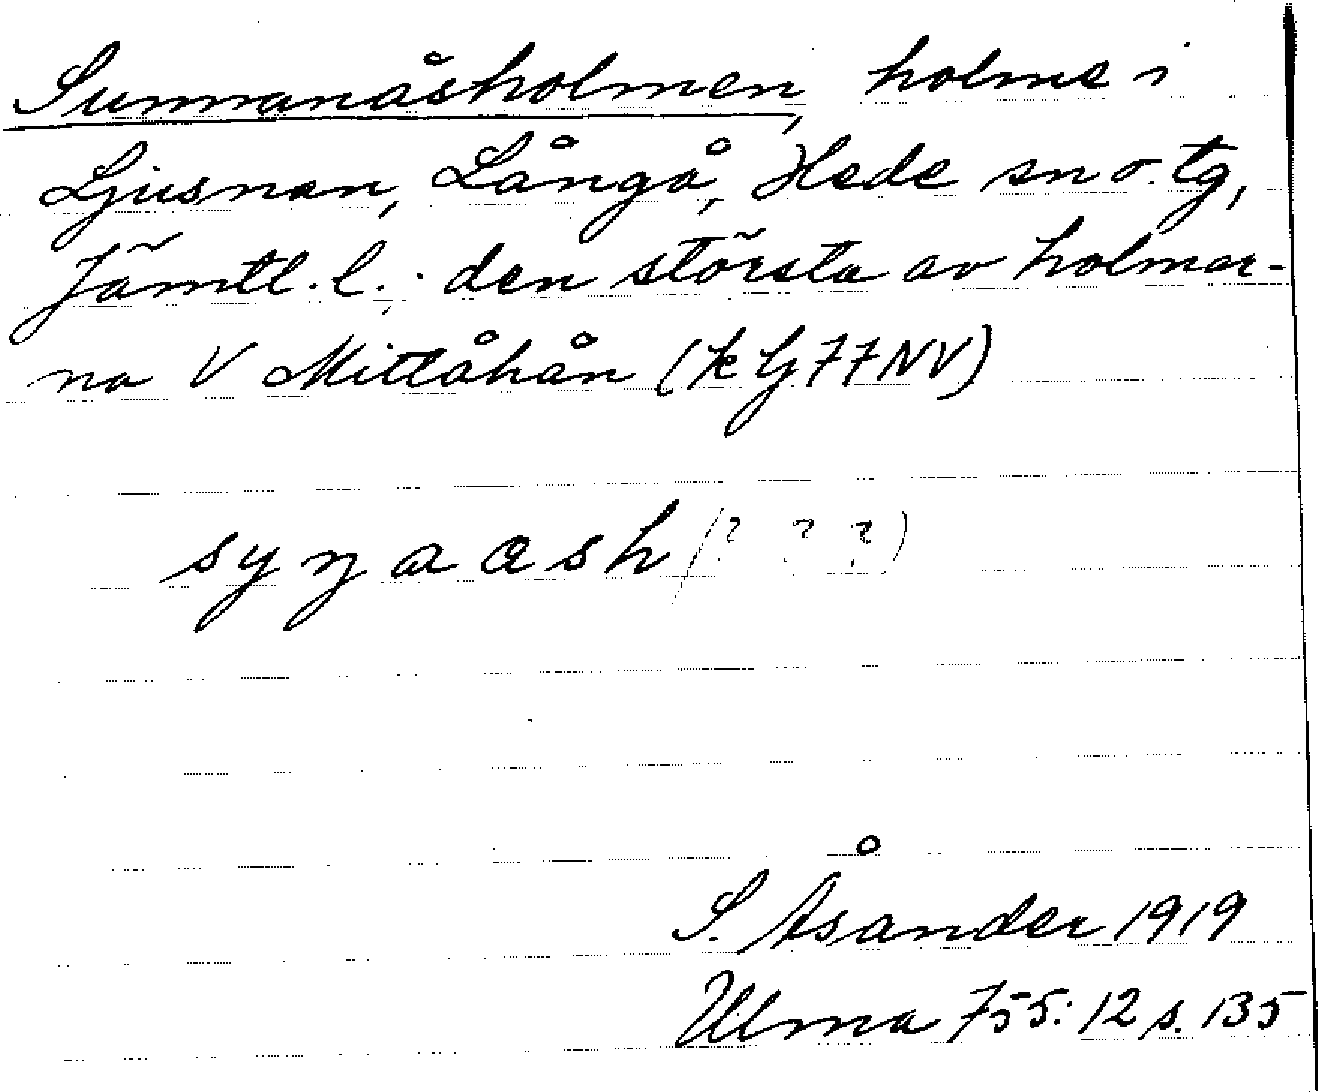 Sunnanåsholmen, holme i
Ljusnan, Långå, Hede sn o. tg,
Jämtl. l.; den största av holmar-
na V Mittåhån (k Lj 77 NV)
S. Åsander 1919
Ulma 755:12 s. 135